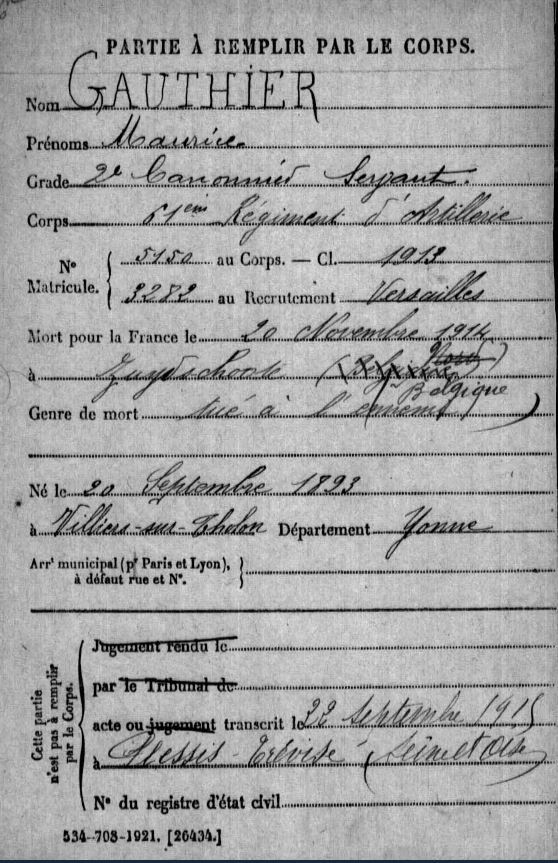 PARTIE À REMPLIR PAR LE CORPS.
Nom GAUTHIER
Prénoms Maurice
Grade 2e Canonnier Servant.
Corps 61eme Régiment d'Artillerie
N° Matricule. { 5150 au Corps. — Cl. 1913
3282 au Recrutement Versailles
Mort pour la France le 20 Novembre 1914
à Zuydschoote (Belgique)
Genre de mort tué à l'ennemi
Né le 20 Septembre 1893
à Villiers-sur-Tholon Département Yonne
Arrt municipal (pr Paris et Lyon), }
à défaut rue et N°.
Cette partie n'est pas à remplir par le Corps.
Jugement rendu le
par le Tribunal de
acte ou jugement transcrit le 22 septembre 1915
à Plessis-Trévise (Seine et Oise)
N° du registre d'état civil
534-708-1921. [26434.]